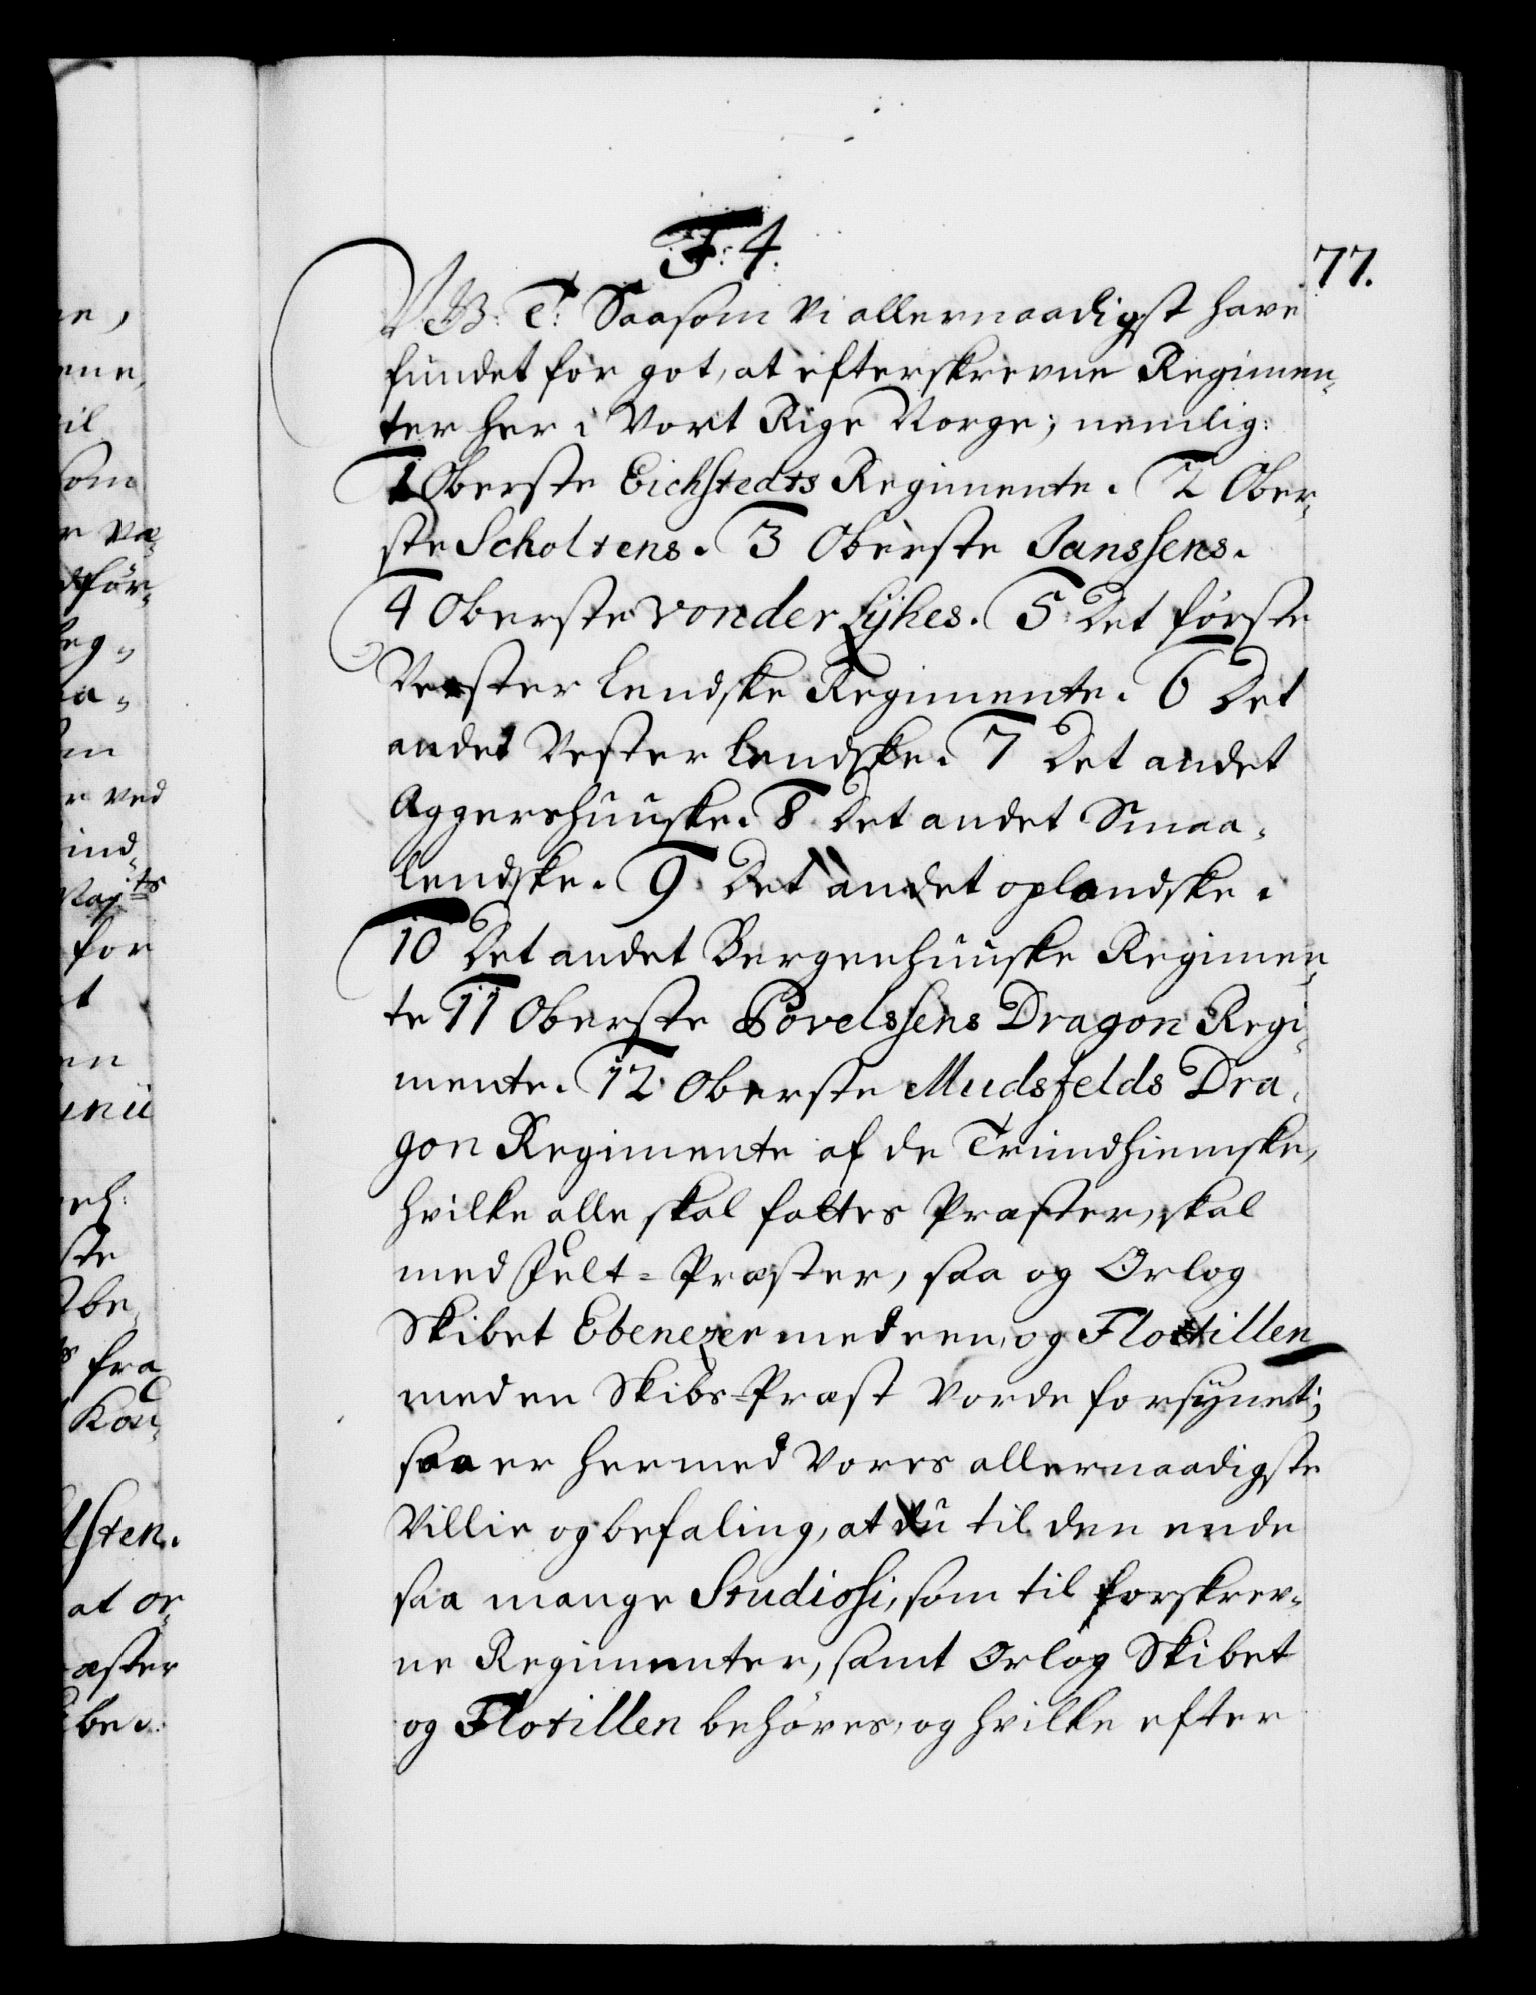 F: 4.
77.
V G: T: Saasom Vi allernaadigst have
fundet for got, at efterskrevne Regimen,
ter her i Vort Rige Norge; nemlig:
1 Oberste Eichstedts Regimente. 2 Ober,
ste Scholtens. 3 Oberste Janssens.
4 Oberste von der Lyhes. 5 Det første
Vester lendske Regimente. 6 Det
andet Vester lendske. 7 Det andet
Aggershuuske. 8 Det andet Smaa,
lendske. 9 Det andet oplandske.
10 Det andet Bergenhuuske Regimen,
te 11 Oberste Povelssens Dragon Regi,
mente. 12 Oberste Mudsfelds Dra,
gon Regimente af de Trundhiemske,
hvilke alle skal fattes Præster, skal
med Felt=Præster, saa og Orlog
Skibet Ebenezer med een, og Flottillen
med en Skibs=Præst vorde forsynet;
saa er hermed Vores allernaadigste
Villie og befaling, at du til den ende
saa mange Studiosi, som til forskrev,
ne Regimenter, samt Orlog Skibet
og Flotillen behöves, og hvilke efter
ne,
ene,
il
som
r Va,
dför,
eg,
a,
en
r ved
ind,
Maj.ts
for
t
en
unii
ste
be,
fra
Kou,
lsten.
at or,
æster
be.